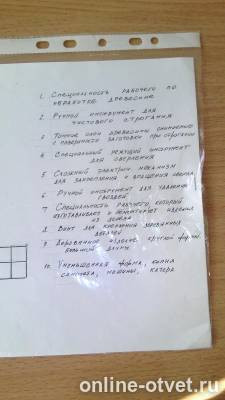 1. Специальность рабочего по
обработке древесине
2. Ручной инструмент для
чистового строгания
3. Тонкие слои древесины снимаемые
с поверхности заготовки при строгании
4. Специальный режущий инструмент
для сверления
5. Сложный электрич. механизм
для закрепления и вращения сверла
6. Ручной инструмент для удаления
гвоздей
7. Специальность рабочего, который
изготавливает и ремонтирует изделия
из дерева
8. Винт для крепления деревянных
деталей
9. Деревянное изделие круглой формы
большой длины
10. Уменьшенная форма, копия
самолёта, машины, катера
online-otvet.ru